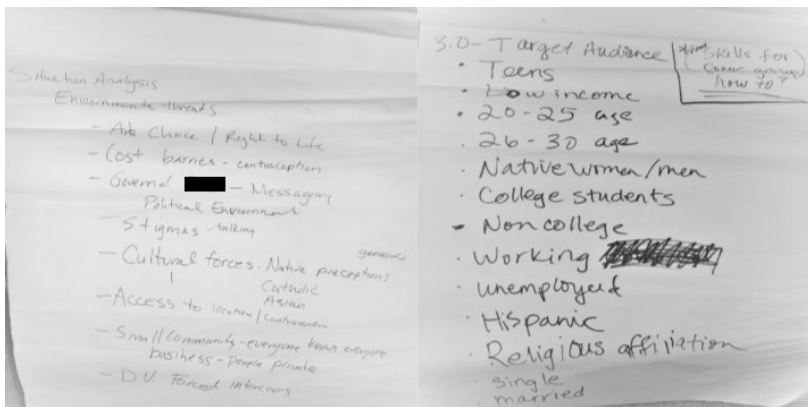 Situation Analysis
Enviornmental threats
- Anti Choice / Right to Life
- Cost barries - contraception
- Govermal - Messaging
Political Enviornment
- Stigmas - talking
- Cultural forces - Native preceptions
genocide
Catholic
Asian
- Access to location /
- Small community - everyone knows everyone
business - people private
- D.V. Forced
3.0 - Target Audience
Skills for
how to?
· Teens
· Low income
· 20-25 age
· 26-30 age
· Native women/men
· College students
- Non college
· Working
· unemployed
· Hispanic
· Religious affiliation
· single
· married